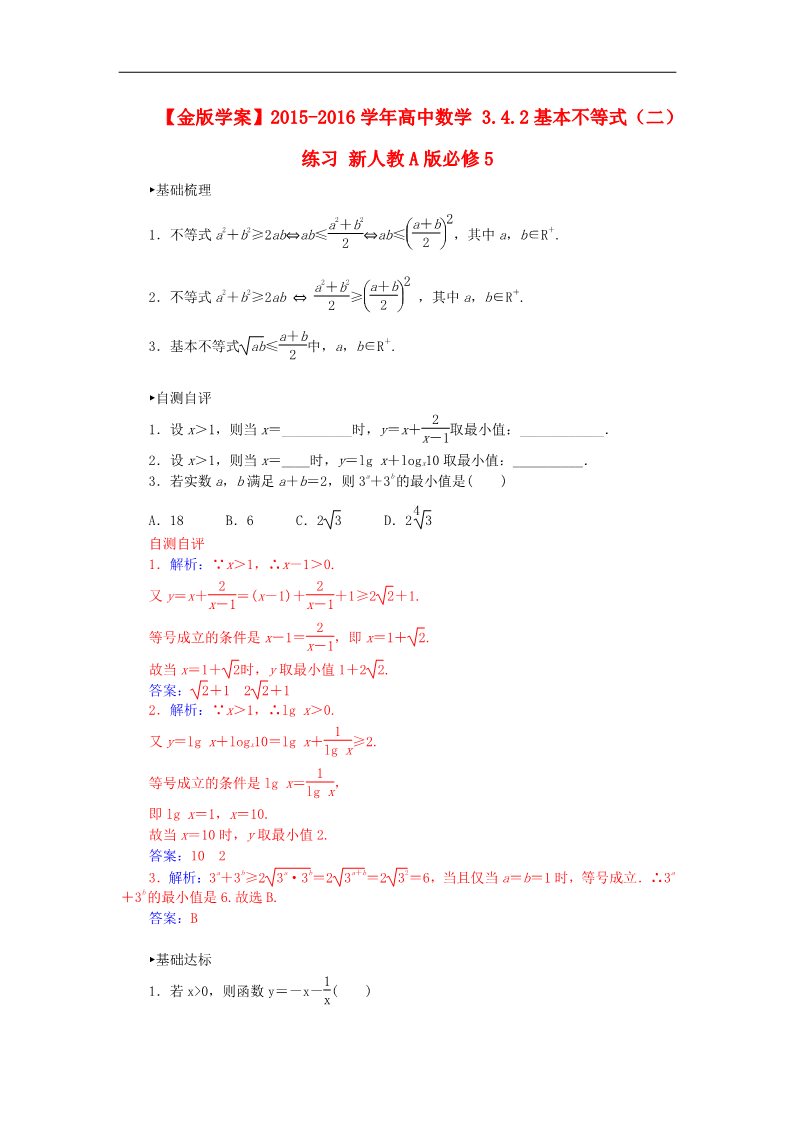 【金版学案】2015-2016 学年高中数学 3.4.2 基本不等式（二）
练习 新人教 A 版必修 5
▸基础梳理
1．不等式 a²＋b²≥2ab⇔ab≤(a²＋b²)/2⇔ab≤((a＋b)/2)²，其中 a，b∈R⁺.
2．不等式 a²＋b²≥2ab ⇔ (a²＋b²)/2≥((a＋b)/2)² ，其中 a，b∈R⁺.
3．基本不等式√(ab)≤(a＋b)/2中，a，b∈R⁺.
▸自测自评
1．设 x＞1，则当 x＝__________时，y＝x＋2/(x－1)取最小值：____________．
2．设 x＞1，则当 x＝____时，y＝lg x＋logₓ10 取最小值：__________．
3．若实数 a，b 满足 a＋b＝2，则 3ᵃ＋3ᵇ的最小值是(　　)
A．18　　B．6　　C．2√3　　D．2∜3
自测自评
1．解析：∵x＞1，∴x－1＞0.
又 y＝x＋2/(x－1)＝(x－1)＋2/(x－1)＋1≥2√2＋1.
等号成立的条件是 x－1＝2/(x－1)，即 x＝1＋√2.
故当 x＝1＋√2时，y 取最小值 1＋2√2.
答案：√2＋1　2√2＋1
2．解析：∵x＞1，∴lg x＞0.
又 y＝lg x＋logₓ10＝lg x＋1/(lg x)≥2.
等号成立的条件是 lg x＝1/(lg x)，
即 lg x＝1，x＝10.
故当 x＝10 时，y 取最小值 2.
答案：10　2
3．解析：3ᵃ＋3ᵇ≥2√(3ᵃ·3ᵇ)＝2√(3ᵃ⁺ᵇ)＝2√(3²)＝6，当且仅当 a＝b＝1 时，等号成立．∴3ᵃ
＋3ᵇ的最小值是 6.故选 B.
答案：B
▸基础达标
1．若 x>0，则函数 y＝－x－1/x(　　)